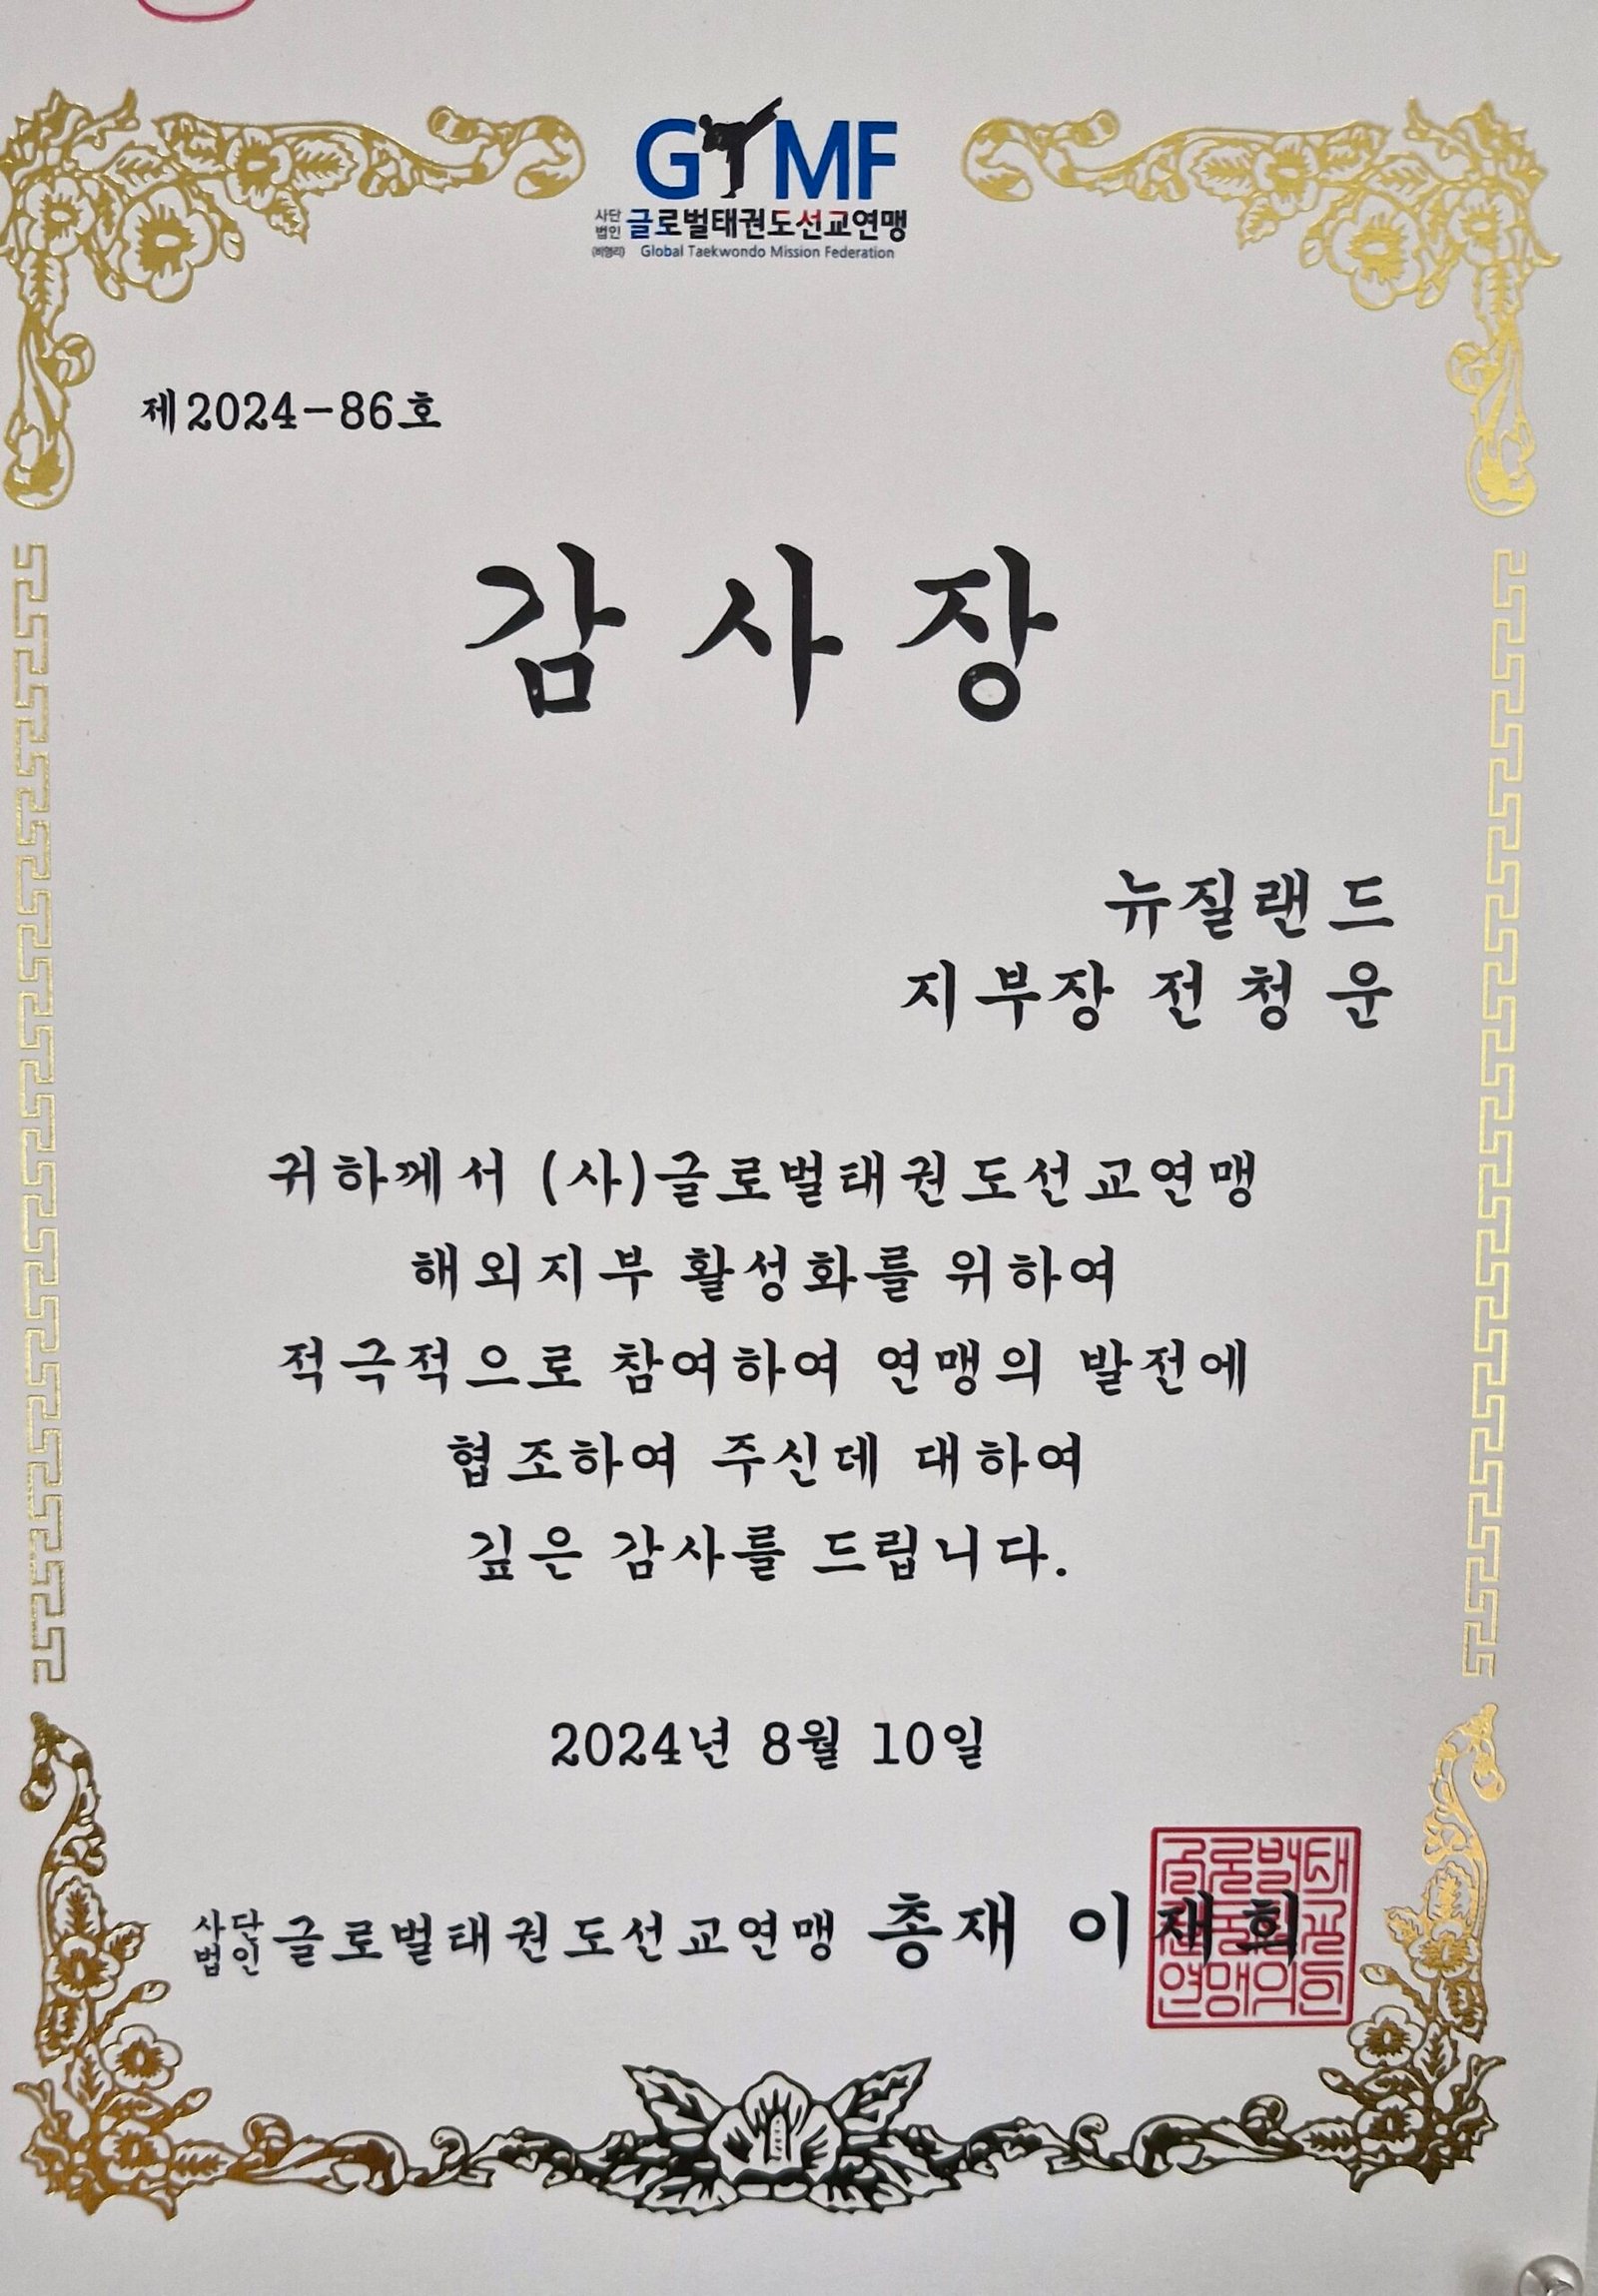 GTMF
사단법인 글로벌태권도선교연맹
(비영리) Global Taekwondo Mission Federation
제2024-86호
감사장
뉴질랜드
지부장 전청운
귀하께서 (사)글로벌태권도선교연맹
해외지부 활성화를 위하여
적극적으로 참여하여 연맹의 발전에
협조하여 주신데 대하여
깊은 감사를 드립니다.
2024년 8월 10일
사단법인 글로벌태권도선교연맹 총재 이재희